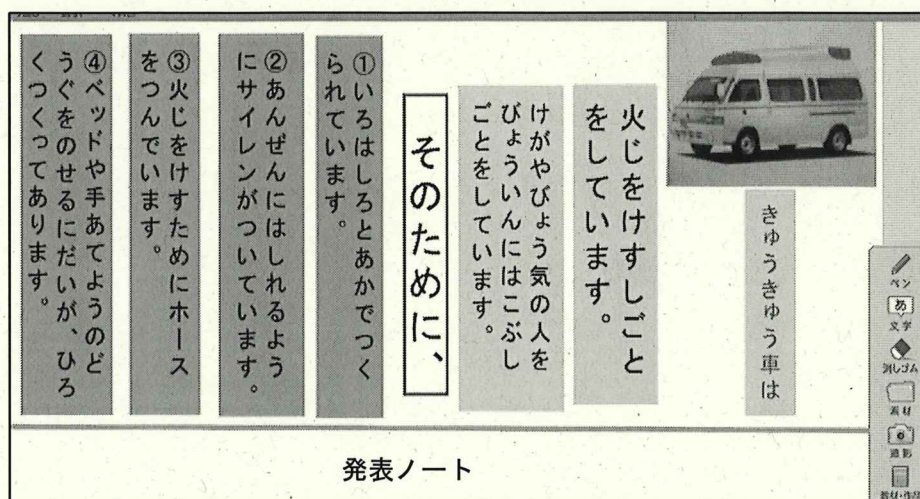 きゅうきゅう車は
火じをけすしごと
をしています。
けがやびょう気の人を
びょういんにはこぶし
ごとをしています。
そのために、
①いろはしろとあかでつく
られています。
②あんぜんにはしれるよう
にサイレンがついています。
③火じをけすためにホース
をつんでいます。
④ベッドや手あてようのど
うぐをのせるにだいが、ひろ
くつくってあります。
ペン
文字
消しゴム
素材
撮影
発表ノート